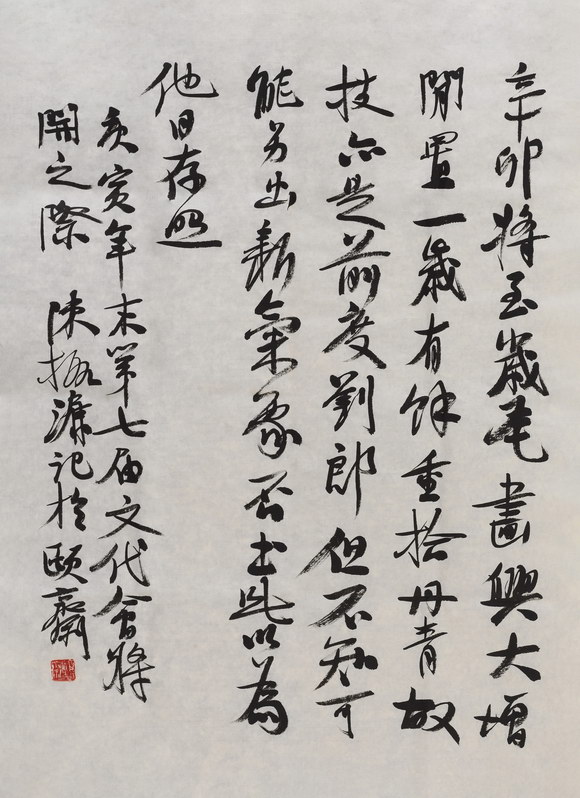 辛卯將至歲尾畫興大增
閒置一歲有餘重拾丹青故
技亦是前度劉郎但不知可
能另出新氣象否書此以為
他日存照
庚寅年末第七届文代會將
開之際 陳振濂記於頤齋